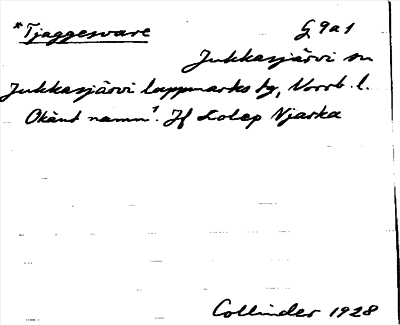 *Tjaggesvare G 9a1
Jukkasjärvi sn
Jukkasjärvi lappmarks tg, Norrb. l.
Okänt namn¹. Jf Lolep Njarka
Collinder 1928